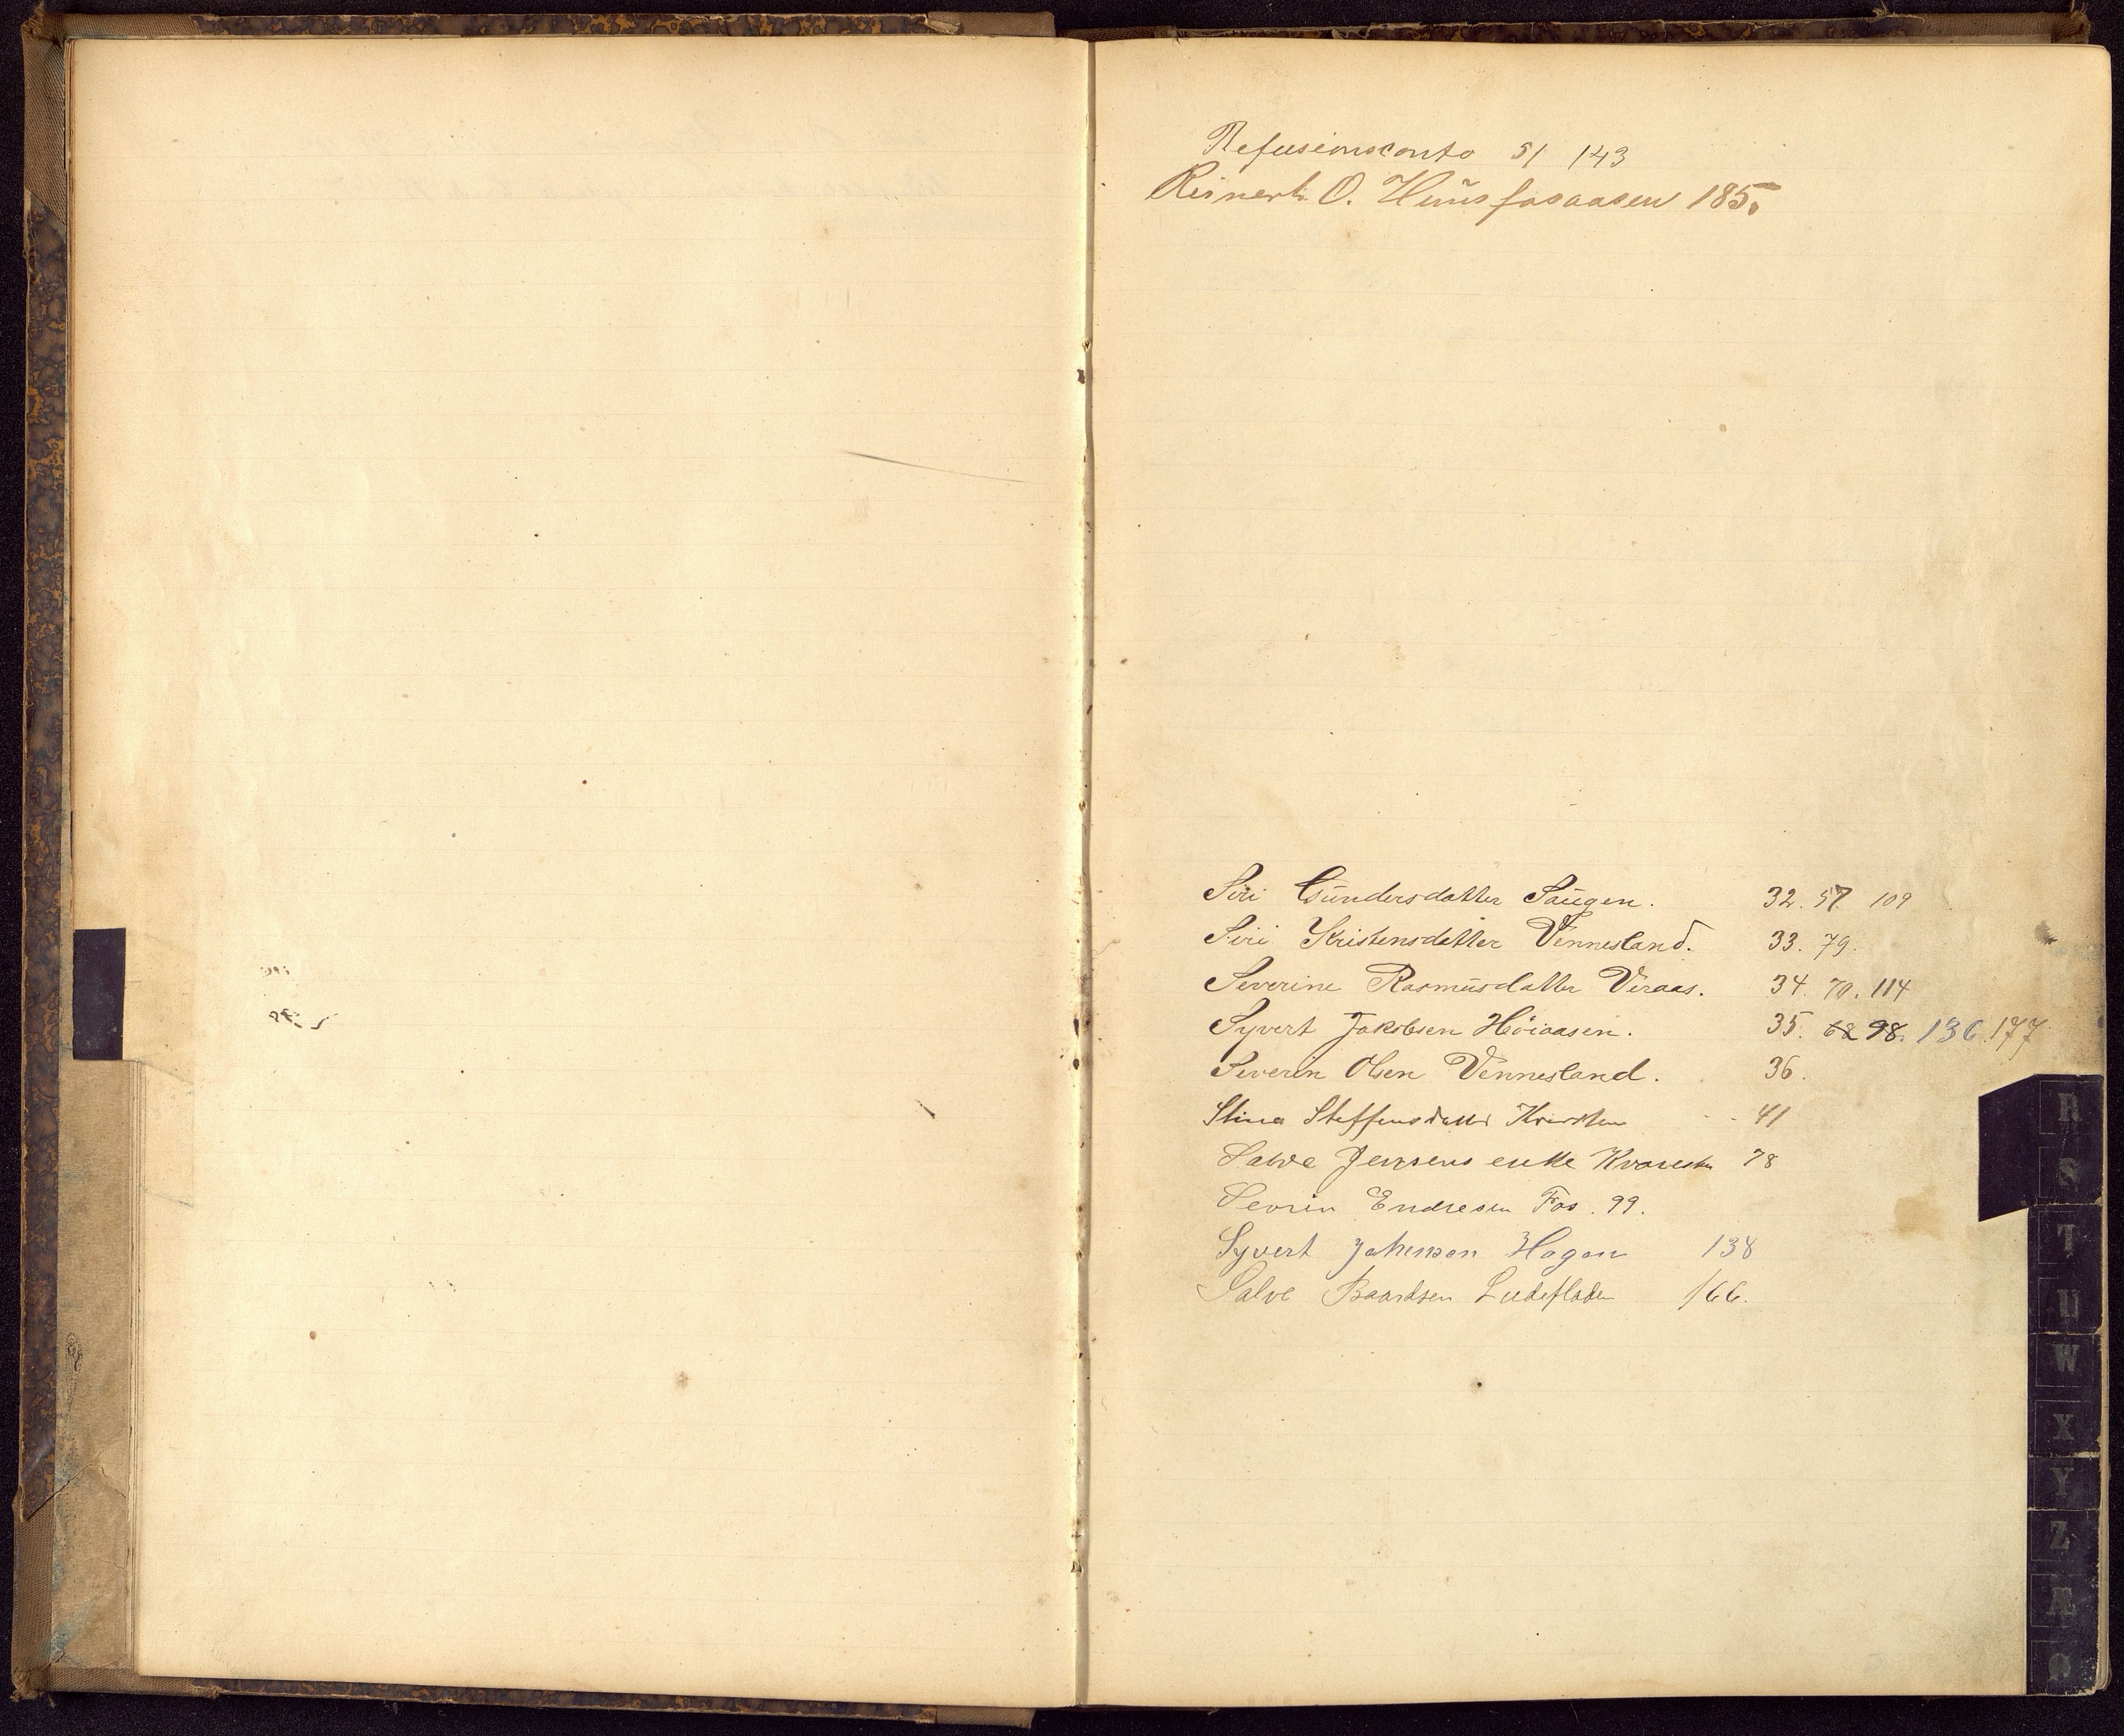 Refusionsconto 51 143
Reinert. O. Huusfosaasen 185.
Siri Gundersdatter Saugen. 32. 57. 109
Siri Kristensdatter Vennesland. 33. 79.
Severine Rasmusdatter Veraas. 34. 70. 114
Syvert Jakobsen Höiaasen. 35. 68 98. 136. 177
Severin Olsen Vennesland. 36.
Stina Steffensdatter 41
Salve Jensens enke 78
Sevrin Endresen Fos. 99.
Syvert Johnson Hagen 138
Salve Baardsen Ludefladen 166.
R
S
T
U
W
X
Y
Z
Æ
Ø